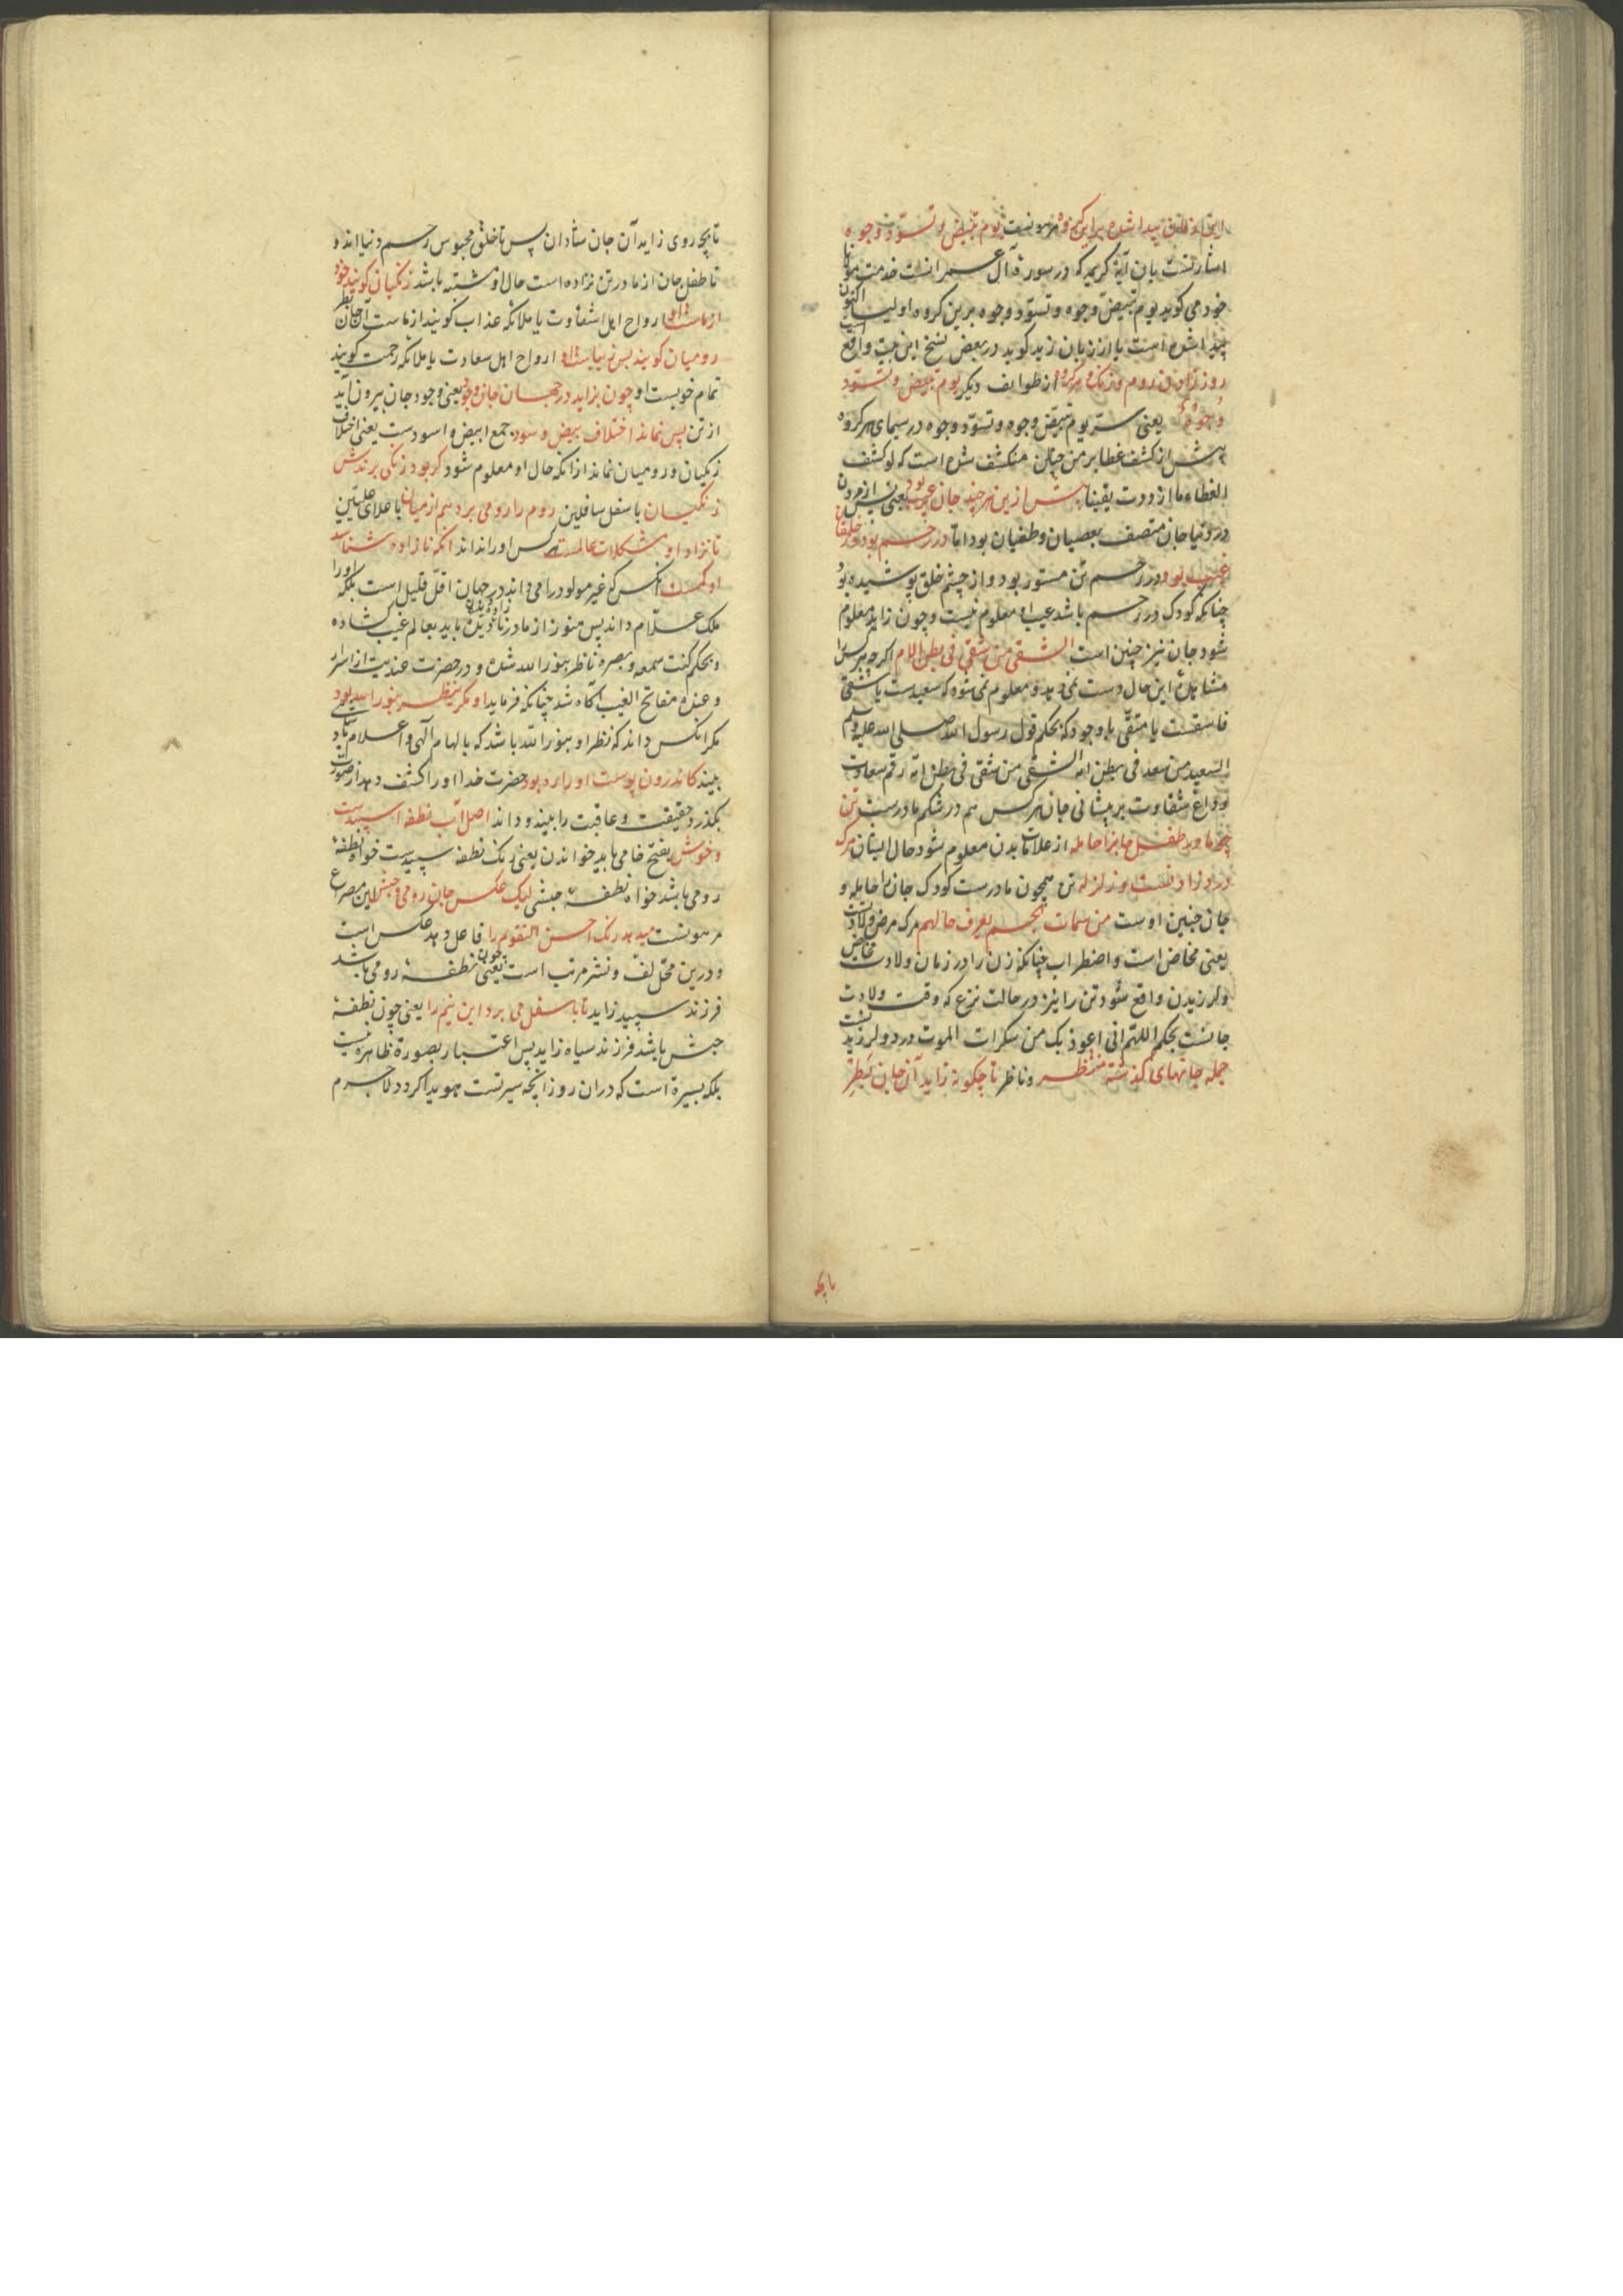 این زمان پیدا شده بر این گروه مرهونست یوم تبیض و تسود وجوه
اشارتست بان آیة کریمه که در سورة آل عمرانست خدمت مولانا
خود می کوید یوم تبیض وجوه و تسود وجوه برین کروه اولیا اکنون
پیدا شده است یا از زبان زید کوید در بعض نسخ این بیت واقع است
روز زادن روم و زنک و هر کروه از طوایف دیکر یوم تبیض و تسود
وجوه یعنی سر یوم تبیض وجوه و تسود وجوه در سیمای هر کروه
پیش از کشف غطا بر من چنان منکشف شده است که لو کشف
الغطاء ما ازددت یقینا پیش ازین هر چند جان پر عیب بود یعنی پیش از مردن
در دنیا جان متصف بعصیان و طغیان بود اما در رحم بود و ز خلقان
غیب بود در رحم تن مستور بود و از چشم خلق پوشیده بود
چنانکه کودک در رحم باشد عیب او معلوم نیست و چون زاید معلوم
شود جان نیز چنین است الشقی من شقی فی بطن الام اکرچه هر کس را
مشاهدۀ این حال دست نمی دهد و معلوم نمی شود که سعیدست یا شقی
فاسقست یا متقی با وجود که بحکم قول رسول الله صلی الله علیه وسلم
السعید من سعد فی بطن امه الشقی من شقی فی بطن امه رقم سعادت
و داغ شقاوت بر پیشانی جان هر کس هم در شکم مادرست تن
چو مادر طفل جانرا حامله از علامات بدن معلوم شود حال ایشان مرک
درد زادنست و زلزله تن همچون مادرست کودک جان را حامله و
جان جنین اوست من سمات الجسم یعرف حالهم مرک مرض ولادتست
یعنی مخاض است و اضطراب چنانکه زن را در زمان ولادت مخاض
و لرزیدن واقع شود تن را نیز در حالت نزع که وقت ولادت
جانست بحکم اللهم انی اعوذ بک من سکرات الموت درد و لرزیدنست
جمله جانهای کذشته منتظر و ناظر تا چکونه زاید آن جان بطر
تا بچه
تا بچه روی زاید آن جان شادان پس تا خلق محبوس رحم دنیا اند و
تا طفل جان از مادر تن نزاده است حال او مشتبه باشد زنکیان کویند خود
از ماست او ارواح اهل شقاوت یا ملائکه عذاب کویند از ماست آن جان بطر
رومیان کویند بس زیباست او ارواح اهل سعادت یا ملائکه رحمت کویند
تمام خوبست او چون بزاید در جهان جان و جود یعنی وجود جان بیرون آید
از تن پس نماند اختلاف بیض و سود جمع ابیض و اسودست یعنی اختلاف
زنکیان و رومیان نماند از انکه حال او معلوم شود کر بود زنکی برندش
زنکیان باسفل سافلین روم را رومی برد هم از میان باعلای علیین
تا نزاد او مشکلات عالمست هر کس او را نداند انکه نازاده شناسد
او کمست انکس که غیر مولود را می داند در جهان اقل قلیل است بلکه او را
ملک علام داند پس هنوز از مادر نازاده دیدن باید بعالم غیب کشاده
و بحکم کنت سمعه و بصره ناظر بنور الله شده و در حضرت عندیت از اسرار
و عنده مفاتح الغیب آکاه شد چنانکه فرماید او مکر ینظر بنور الله بود
مکر انکس داند که نظر او بنور الله باشد که بالهام آلهی و اعلام نامتناهی
بیند کاندرون پوست او را ره بود حضرت خدا او را کشف دهد از صورت
بکذرد حقیقت و عاقبت را بیند و داند اصل آب نطفه اسپیدست
و خوش بفتح خا می باید خواندن یعنی رنک نطفه سپیدست خواه نطفۀ
رومی باشد خواه نطفۀ حبشی لیک عکس جان رومی و حبش این مصراع
مرهونست میدهد رنک احسن التقویم را فاعل دهد عکس است
و درین محل لف و نشر مرتب است یعنی چون نطفۀ رومی باشد
فرزند سپید زاید تا باسفل می برد این نیم را یعنی چون نطفۀ
حبش باشد فرزند سیاه زاید پس اعتبار بصورة ظاهره نیست
بلکه بسیرة است که دران روز انچه سیرتست هویدا کردد لاجرم